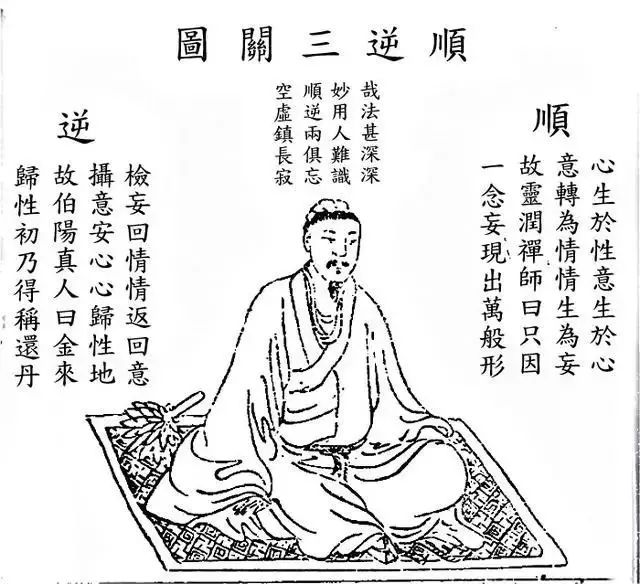 順逆三關圖
哉法甚深深
妙用人難識
順逆兩俱忘
空虛鎮長寂
順
心生於性意生於心
意轉為情情生為妄
故靈潤禪師曰只因
一念妄現出萬般形
逆
檢妄回情情返回意
攝意安心心歸性地
故伯陽真人曰金來
歸性初乃得稱還丹